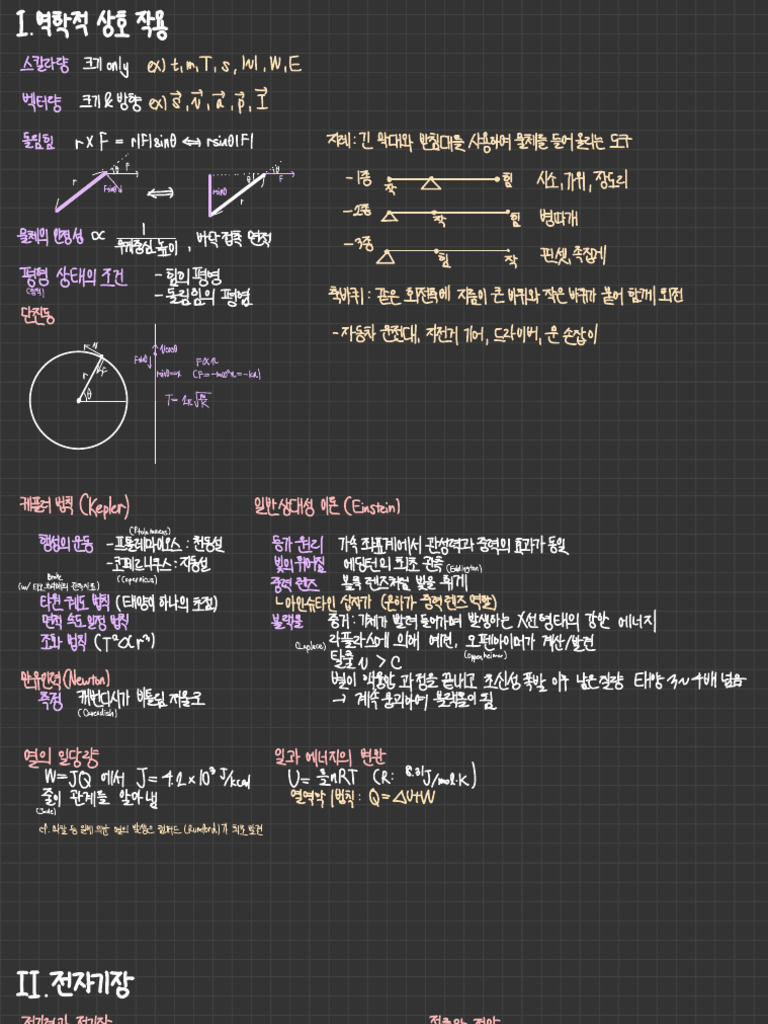 I. 역학적 상호 작용
스칼라량 크기 only ex) t, m, T, s, |v|, W, E
벡터량 크기 & 방향 ex) s⃗, v⃗, a⃗, p⃗, I⃗
돌림힘 r × F = r|F|sinθ ⇔ rsinθ|F|
r θ F Fsinθ
⇔
rsinθ r θ F
물체의 안정성 ∝ 1/무게중심 높이, 바닥 접촉 면적
평형 상태의 조건 - 힘의 평형
- 돌림힘의 평형
단진동
v r F θ
Fsinθ vcosθ
F∝x
rsinθ=x (F=-mω²x=-kx)
T=2π√(m/k)
지레: 긴 막대와 받침대를 사용하여 물체를 들어 올리는 도구
- 1종 작 힘 시소, 가위, 장도리
- 2종 작 힘 병따개
- 3종 힘 작 핀셋, 족집게
축바퀴: 같은 회전축에 지름이 큰 바퀴와 작은 바퀴가 붙어 함께 회전
- 자동차 운전대, 자전거 기어, 드라이버, 문 손잡이
케플러 법칙 (Kepler)
행성의 운동 - 프톨레마이오스: 천동설
(Ptolemaeus)
- 코페르니쿠스: 지동설
(Copernicus)
타원 궤도 법칙 (태양이 하나의 초점)
면적 속도 일정 법칙
조화 법칙 (T²∝r³)
만유인력 (Newton)
측정 캐번디시가 비틀림 저울로
(Cavendish)
일반 상대성 이론 (Einstein)
등가 원리 가속 좌표계에서 관성력과 중력의 효과가 동일
빛의 휘어짐 에딩턴의 최초 관측 (Eddington)
중력 렌즈 볼록 렌즈처럼 빛을 휘게
ㄴ아인슈타인 십자가 (은하가 중력 렌즈 역할)
블랙홀 증거: 기체가 빨려 들어가며 발생하는 X선 형태의 강한 에너지
(Laplace) 라플라스에 의해 예견, 오펜하이머가 계산/발견
탈출 v > c (Oppenheimer)
별이 적용한 과정을 끝내고 초신성 폭발 이후 남은 질량 태양 3~4배 넘음
→ 계속 붕괴하여 블랙홀이 됨
열의 일당량
W=JQ 에서 J=4.2×10³ J/kcal
줄이 관계를 알아냄
(Joule)
cf. 마찰 등 일에 의한 열의 발생은 럼퍼드 (Rumford)가 최초 발견
일과 에너지의 변환
U = 3/2nRT (R: 8.31 J/mol·K)
열역학 1법칙: Q = ΔU+W
II. 전자기장